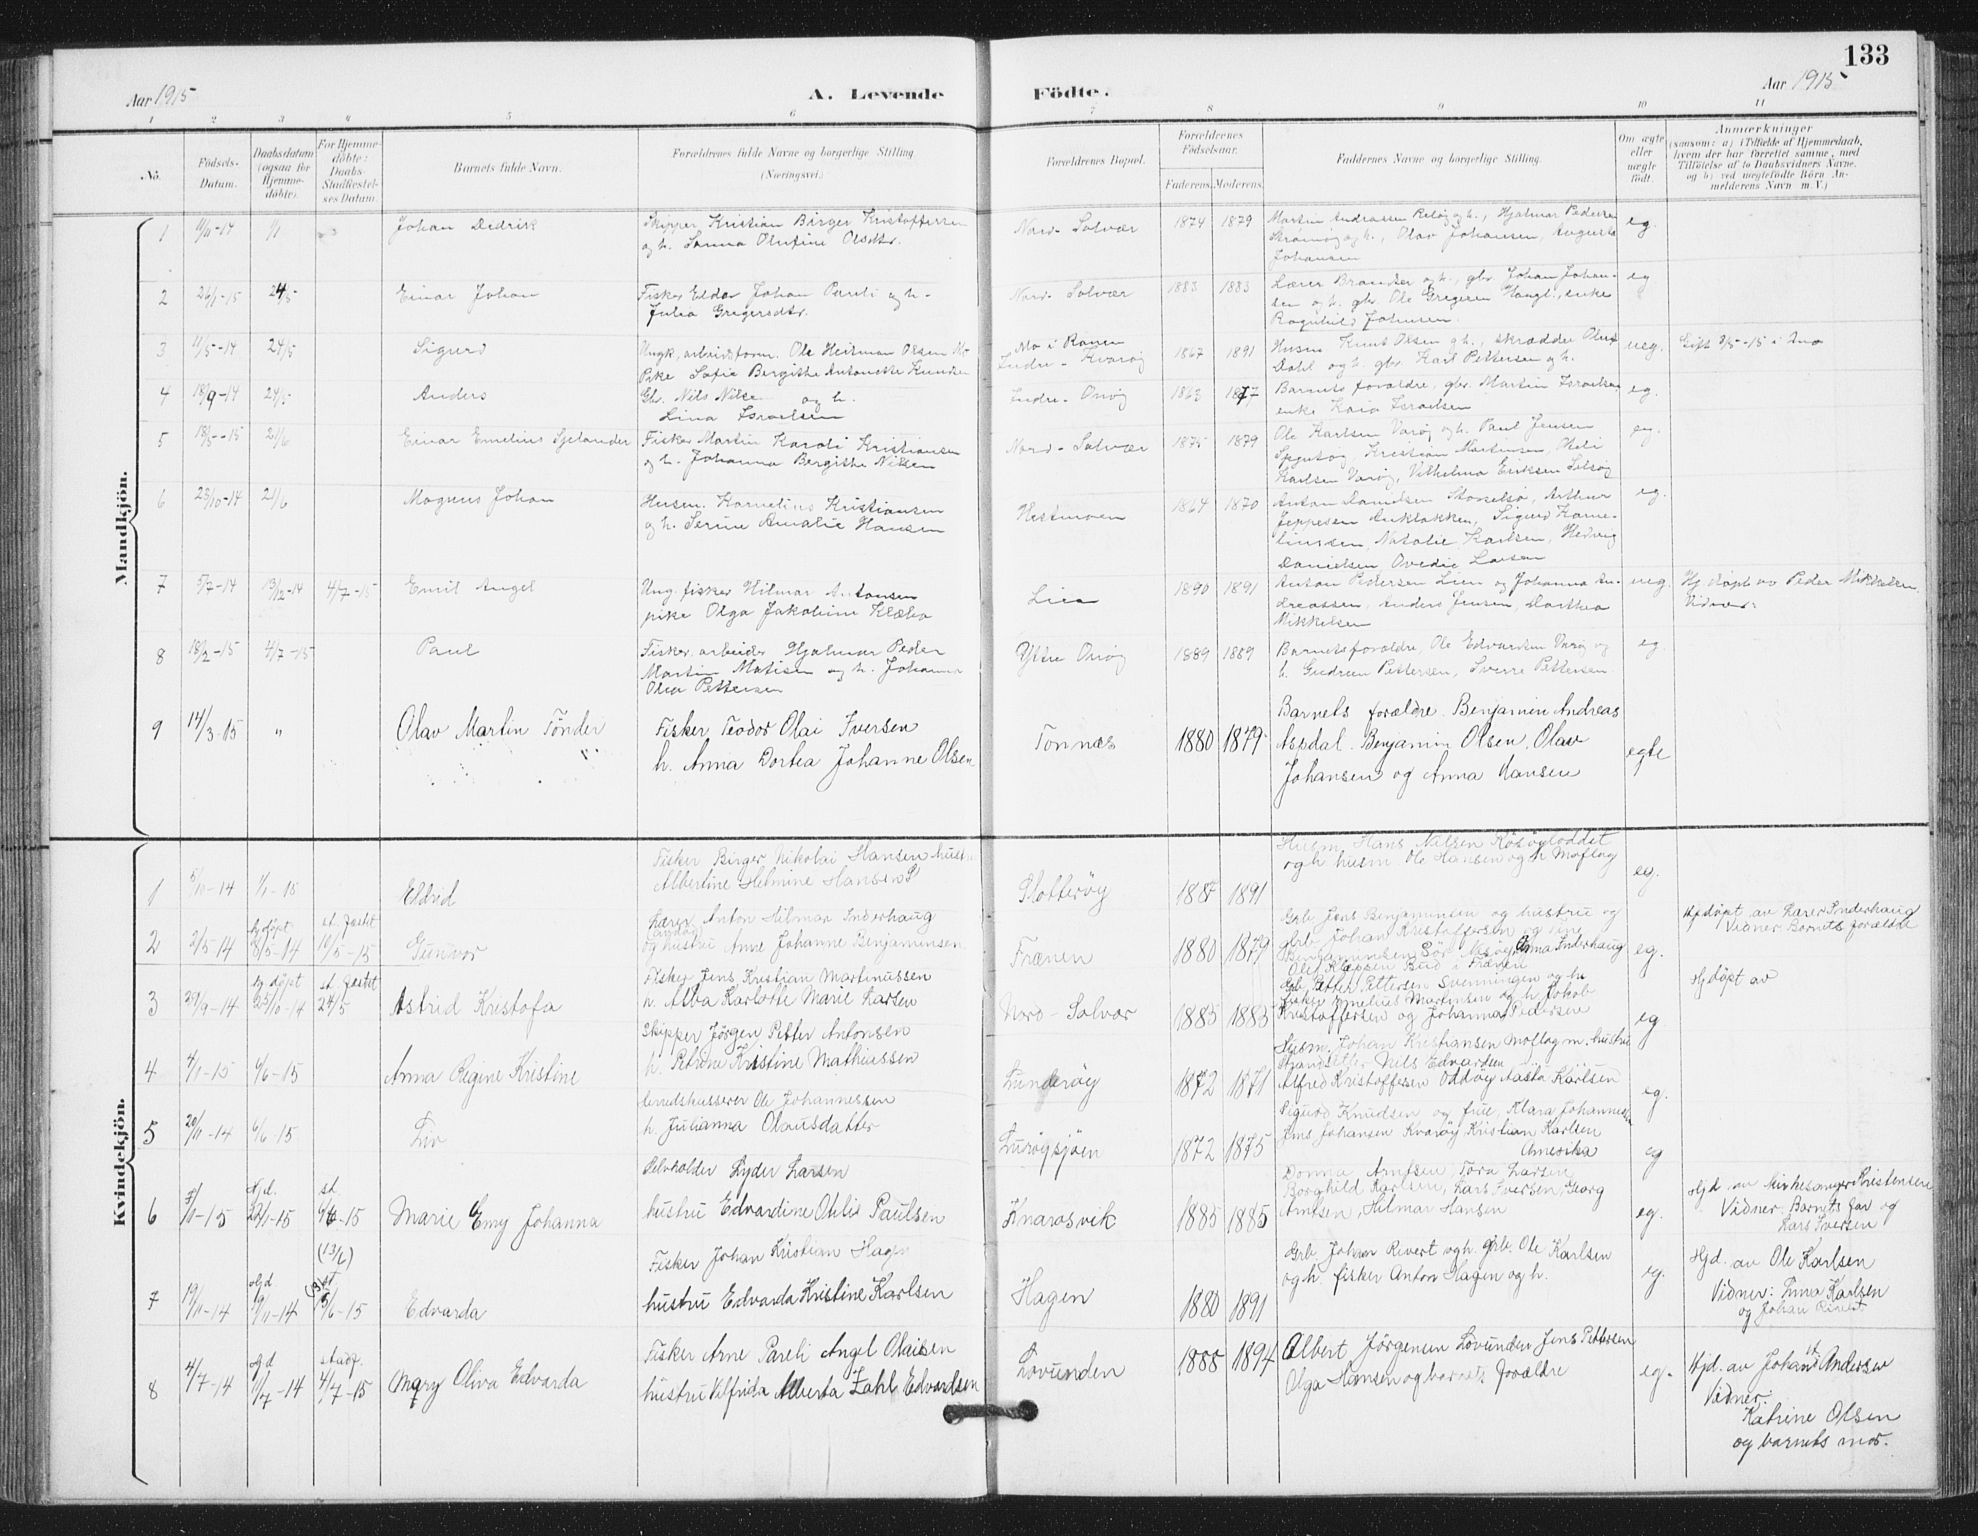 133
Aar 1915
A. Levende Födte.
Aar 1915
1 2 3 4 5 6 7 8 9 10 11
No.
Födsels-Datum.
Daabsdatum (ogsaa for Hjemmedöbte).
For Hjemmedöbte: Daabs-Stadfæstelses Datum.
Barnets fulde Navn.
Forældrenes fulde Navne og borgerlige Stilling (Næringsvei.)
Forældrenes Bopæl.
Forældrenes Födselsaar.
Faderens. Moderens.
Faddernes Navne og borgerlig Stilling.
Om ægte eller uægte födt.
Anmærkninger
(saasom: a) i Tilfælde af Hjemmedaab,
hvem der har forrettet samme, med
Tilföielse af to Daabsvidners Navne.
og b) ved uægtefödte Börn An-
melderens Navn m. V.)
Mandkjön.
1 11/11-14 1/1 Johan Didrik
Skipper Kristian Birger Kristoffersen
og h. Sanna Olufine Olsdtr.
Nord-Solvær 1874 1879
Martin Andreassen Reløy og h., Hjalmar Pedersen
Strømøy og h., Olav Johansen, Augusta
Johansen
eg.
2 26/1-15 24/5 Einar Johan
Fisker Eldor Johan Pareli og h.
Julia Gregersdtr.
Nord-Solvær 1883 1883
Lærer Brandser og h., gbr Johan Johan-
sen og h. gbr. Ole Gregersen Haugl., enke
Ragnhild Johnsen.
eg
3 11/5-14 24/5 Sigurd
Ungk, arbeidsform. Ole Heitman Olsen Mo
Pike Sofie Bergithe Antonette Knudsen
Mo i Ranen
Indre-Kvarøy 1867 1891
Husm Knut Olsen og h., skrædder Oluf
Dahl og h. gbr. Karl Pettersen og h.
ueg. Gift 2/5-15 i Mo
4 18/9-14 24/5 Anders
Gbr. Nils Nilsen og h.
Lina Israelsen
Indre-Onøy 1863 1877
Barnets forældre, gbr. Martin Israelsen,
enke Kaia Israelsen
eg.
5 18/5-15 21/6 Einar Emelius Sjelander
Fisker Martin Karoli Kristiansen
og h. Johanna Bergithe Nilsen
Nord-Solvær 1875 1879
Ole Karlsen Varøy og h. Paul Jensen
Kristian Martinsen, Oteli
Karlsen Varøy, Vilhelmine Eriksen Selsøy
eg.
6 23/10-14 21/6 Magnus Johan
Husm. Kornelius Kristiansen
og h. Serine Amalie Hansen
Hestmoen 1864 1870
Anton Danielsen Stokselsø, Arthur
Jeppesen Sigurd Korne-
liussen, Natalie Karlsen, Hedvig
Danielsen Ovedie Larsen
eg.
7 5/7-14 13/12-14 4/7-15 Emil Angel
Ung. fisker Hilmar Antonsen
pike Olga Jakobine Klæbo
Lien 1890 1891
Anton Pedersen Lien og Johanna An-
dreassen, Anders Jensen, Dorthea
Mikkelsen
ueg. Hj. døpt av Peder Mikkelsen
Vidner:
8 18/2-15 4/7-15 Paul
Fisker, arbeider Hjalmar Peder
Martin Matisen og h. Johanna
Olea Pettersen
Ytre Onøy 1889 1889
Barnets forældre, Ole Edvardsen Varøy og
h. Gudrun Pettersen, Sverre Pettersen
eg.
9 14/3-15 " Olav Martin Tønder
Fisker Teodor Olai Iversen
h. Anna Dortea Johanne Olsen
Tonnes 1880 1879
Barnets forældre. Benjamin Andreas
Aspdal. Benjamin Olsen, Olav
Johansen og Anna Hansen
egte
Kvindekjön.
1 5/10-14 1/1-15 Eldrid
Fisker Birger Nikolai Hansen hustru
Albertine Helmine Hansen
Slotterøy 1887 1891
Husm. Hans Nilsen Røsøyloddet
og h. husm. Ole Hansen og h. Moflag
eg.
2 2/5-14 hj døpt 8/5-14 st. fæstet 10/5-15 Gunvor
Lærer Anton Hilmar Inderhaug
og hustru Ane Johanne Benjaminsen
Frænen 1880 1879
Grb. Jens Benjaminsen og hustru og
Grb Johan Kristoffersen og Line
Benjaminsen Sør Nesøy Anna Inderhaug
Olef Kleppen Bud i Fræna
eg.
Hj døpt av Lærer Inderhaug
Vidner Barnets forældre
3 29/9-14 hj døpt 25/10-14 st. fæstet 24/5 Astrid Kristofa
Fisker Jens Kristian Martinussen
h. Alba Karlotte Marie Karlsen
Nord-Solvær 1885 1883
Grb. Petter Pettersen Svenningen og h.
fisker Emelius Martinsen og h Jakob
Kristoffersen og Johanna Pedersen
eg
Hj døpt av
4 4/1-15 6/6-15 Anna Regine Kristine
Skipper Jørgen Petter Antonsen
h. Petrine Kristine Mathiassen
Lunderøy 1872 1871
Husm. Johan Kristiansen Moflag m. hustru
Nils Edvardsen
Alfred Kristoffersen Oddøy Aasta Karlsen
eg.
5 20/11-14 6/6-15 Liv
Herredskasserer Ole Johannessen
h. Julianna Olausdatter
Lurøygsjøen 1872 1875
Sigurd Knudsen og frue, Klara Johannesen
Jens Johansen Kvarøy Kristian Karlsen
Amerika
eg
6 7/1-15 Hjd. 22/1-15 st. 6/6-15 Marie Emy Johanna
Selvholder Lyder Larsen
hustru Edvardine Otilie Paulsen
Knarosvik 1885 1885
Donna Arntsen, Tora Larsen
Borghild Karlsen, Lars Iversen, Georg
Arntsen, Hilmar Hansen
eg.
Hjd. av Kirkesanger Kristensen
Vidner: Barnets far og
Lars Iversen
7 19/11-14 Hjd 19/11-14 (13/6) st 13/6-15 Edvarda
Fisker Johan Kristian Hagen
hustru Edvarda Kristine Karlsen
Hagen 1880 1891
Grb. Johan Rivert og h. grb. Ole Karlsen
og h. fisker Anton Hagen og h.
eg.
Hjd. av Ole Karlsen
Vidner: Anna Karlsen
og Johan Rivert
8 4/7-14 Hjd 7/7-14 stadf. 4/7-15 Mary Oliva Edvarda
Fisker Arne Pareli Angel Olaisen
hustru Valfrida Alberta Zahl Edvardsen
Lovunden 1888 1894
Albert Jörgensen Lovunden Jens Pettersen
Olga Hansen og barnets forældre
eg.
Hjd. av Johan Andersen
Vidner:
Katrine Olsen
og barnets mor.